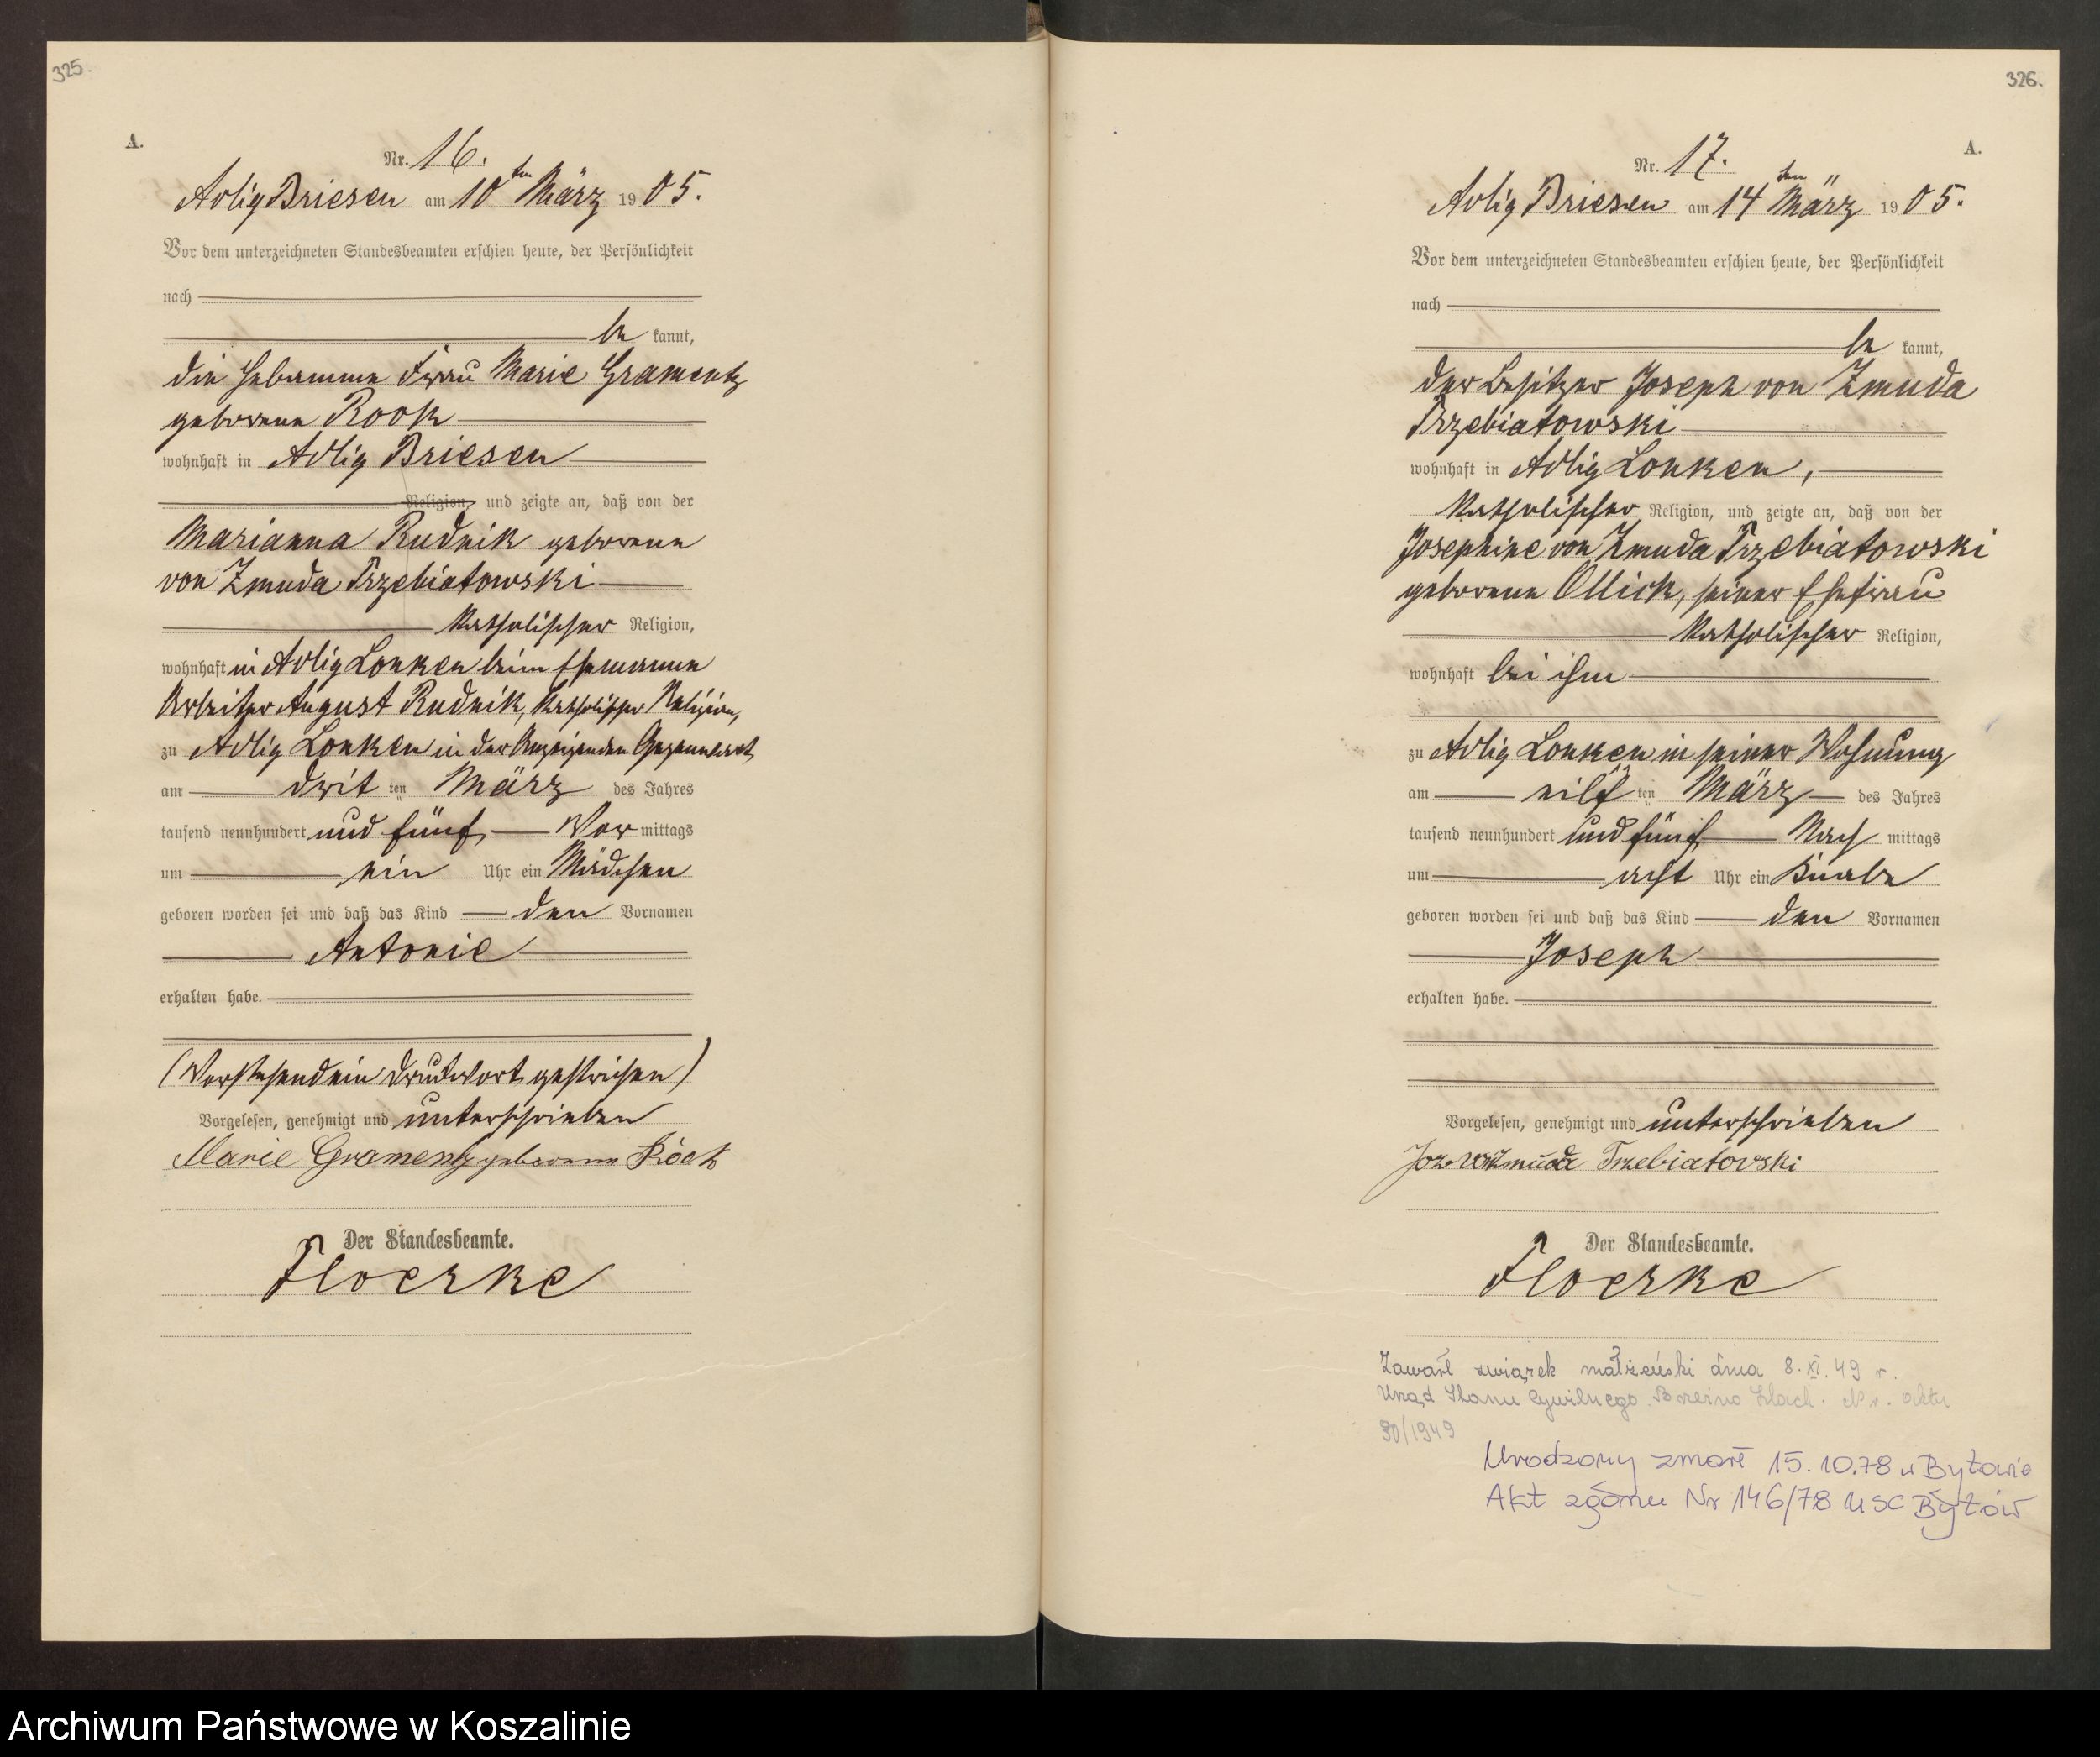 325.
A.
Nr. 16.
Adlig Briesen am 10ten März 1905.
Vor dem unterzeichneten Standesbeamten erschien heute, der Persönlichkeit
nach
be kannt,
die Hebamme Frau Marie Gramentz
geborene Rook
wohnhaft in Adlig Briesen
Religion, und zeigte an, daß von der
Marianna Rudnik geborene
von Zmuda Trzebiatowski
katholischer Religion,
wohnhaft in Adlig Lonken beim Ehemanne
Arbeiter August Rudnik, katholischer Religion,
zu Adlig Lonken in der Anzeigenden Gegenwart
am dritten März des Jahres
tausend neunhundert und fünf, Vor mittags
um ein Uhr ein Mädchen
geboren worden sei und daß das Kind den Vornamen
Antonie
erhalten habe.
(Vorstehend ein Druckwort gestrichen)
Vorgelesen, genehmigt und unterschrieben
Marie Gramentz geborene Rook
Der Standesbeamte.
Floerke
326.
A.
Nr. 17.
Adlig Briesen am 14ten März 1905.
Vor dem unterzeichneten Standesbeamten erschien heute, der Persönlichkeit
nach
be kannt,
der Besitzer Joseph von Zmuda
Trzebiatowski
wohnhaft in Adlig Lonken,
katholischer Religion, und zeigte an, daß von der
Josephine von Zmuda Trzebiatowski
geborene Ollick, seiner Ehefrau
katholischer Religion,
wohnhaft bei ihm
zu Adlig Lonken in seiner Wohnung
am eilften März des Jahres
tausend neunhundert und fünf Nach mittags
um acht Uhr ein Knabe
geboren worden sei und daß das Kind den Vornamen
Joseph
erhalten habe.
Vorgelesen, genehmigt und unterschrieben
Zmuda Trzebiatovski
Der Standesbeamte.
Floerke
Zawarł związek małżeński dnia 8.XI.49 r.
Urząd Stanu Cywilnego Brzeźno Szlach. Nr. aktu
30/1949
Urodzony zmarł 15.10.78 w Bytowie
Akt zgonu Nr 146/78 USC Bytów
Archiwum Państwowe w Koszalinie